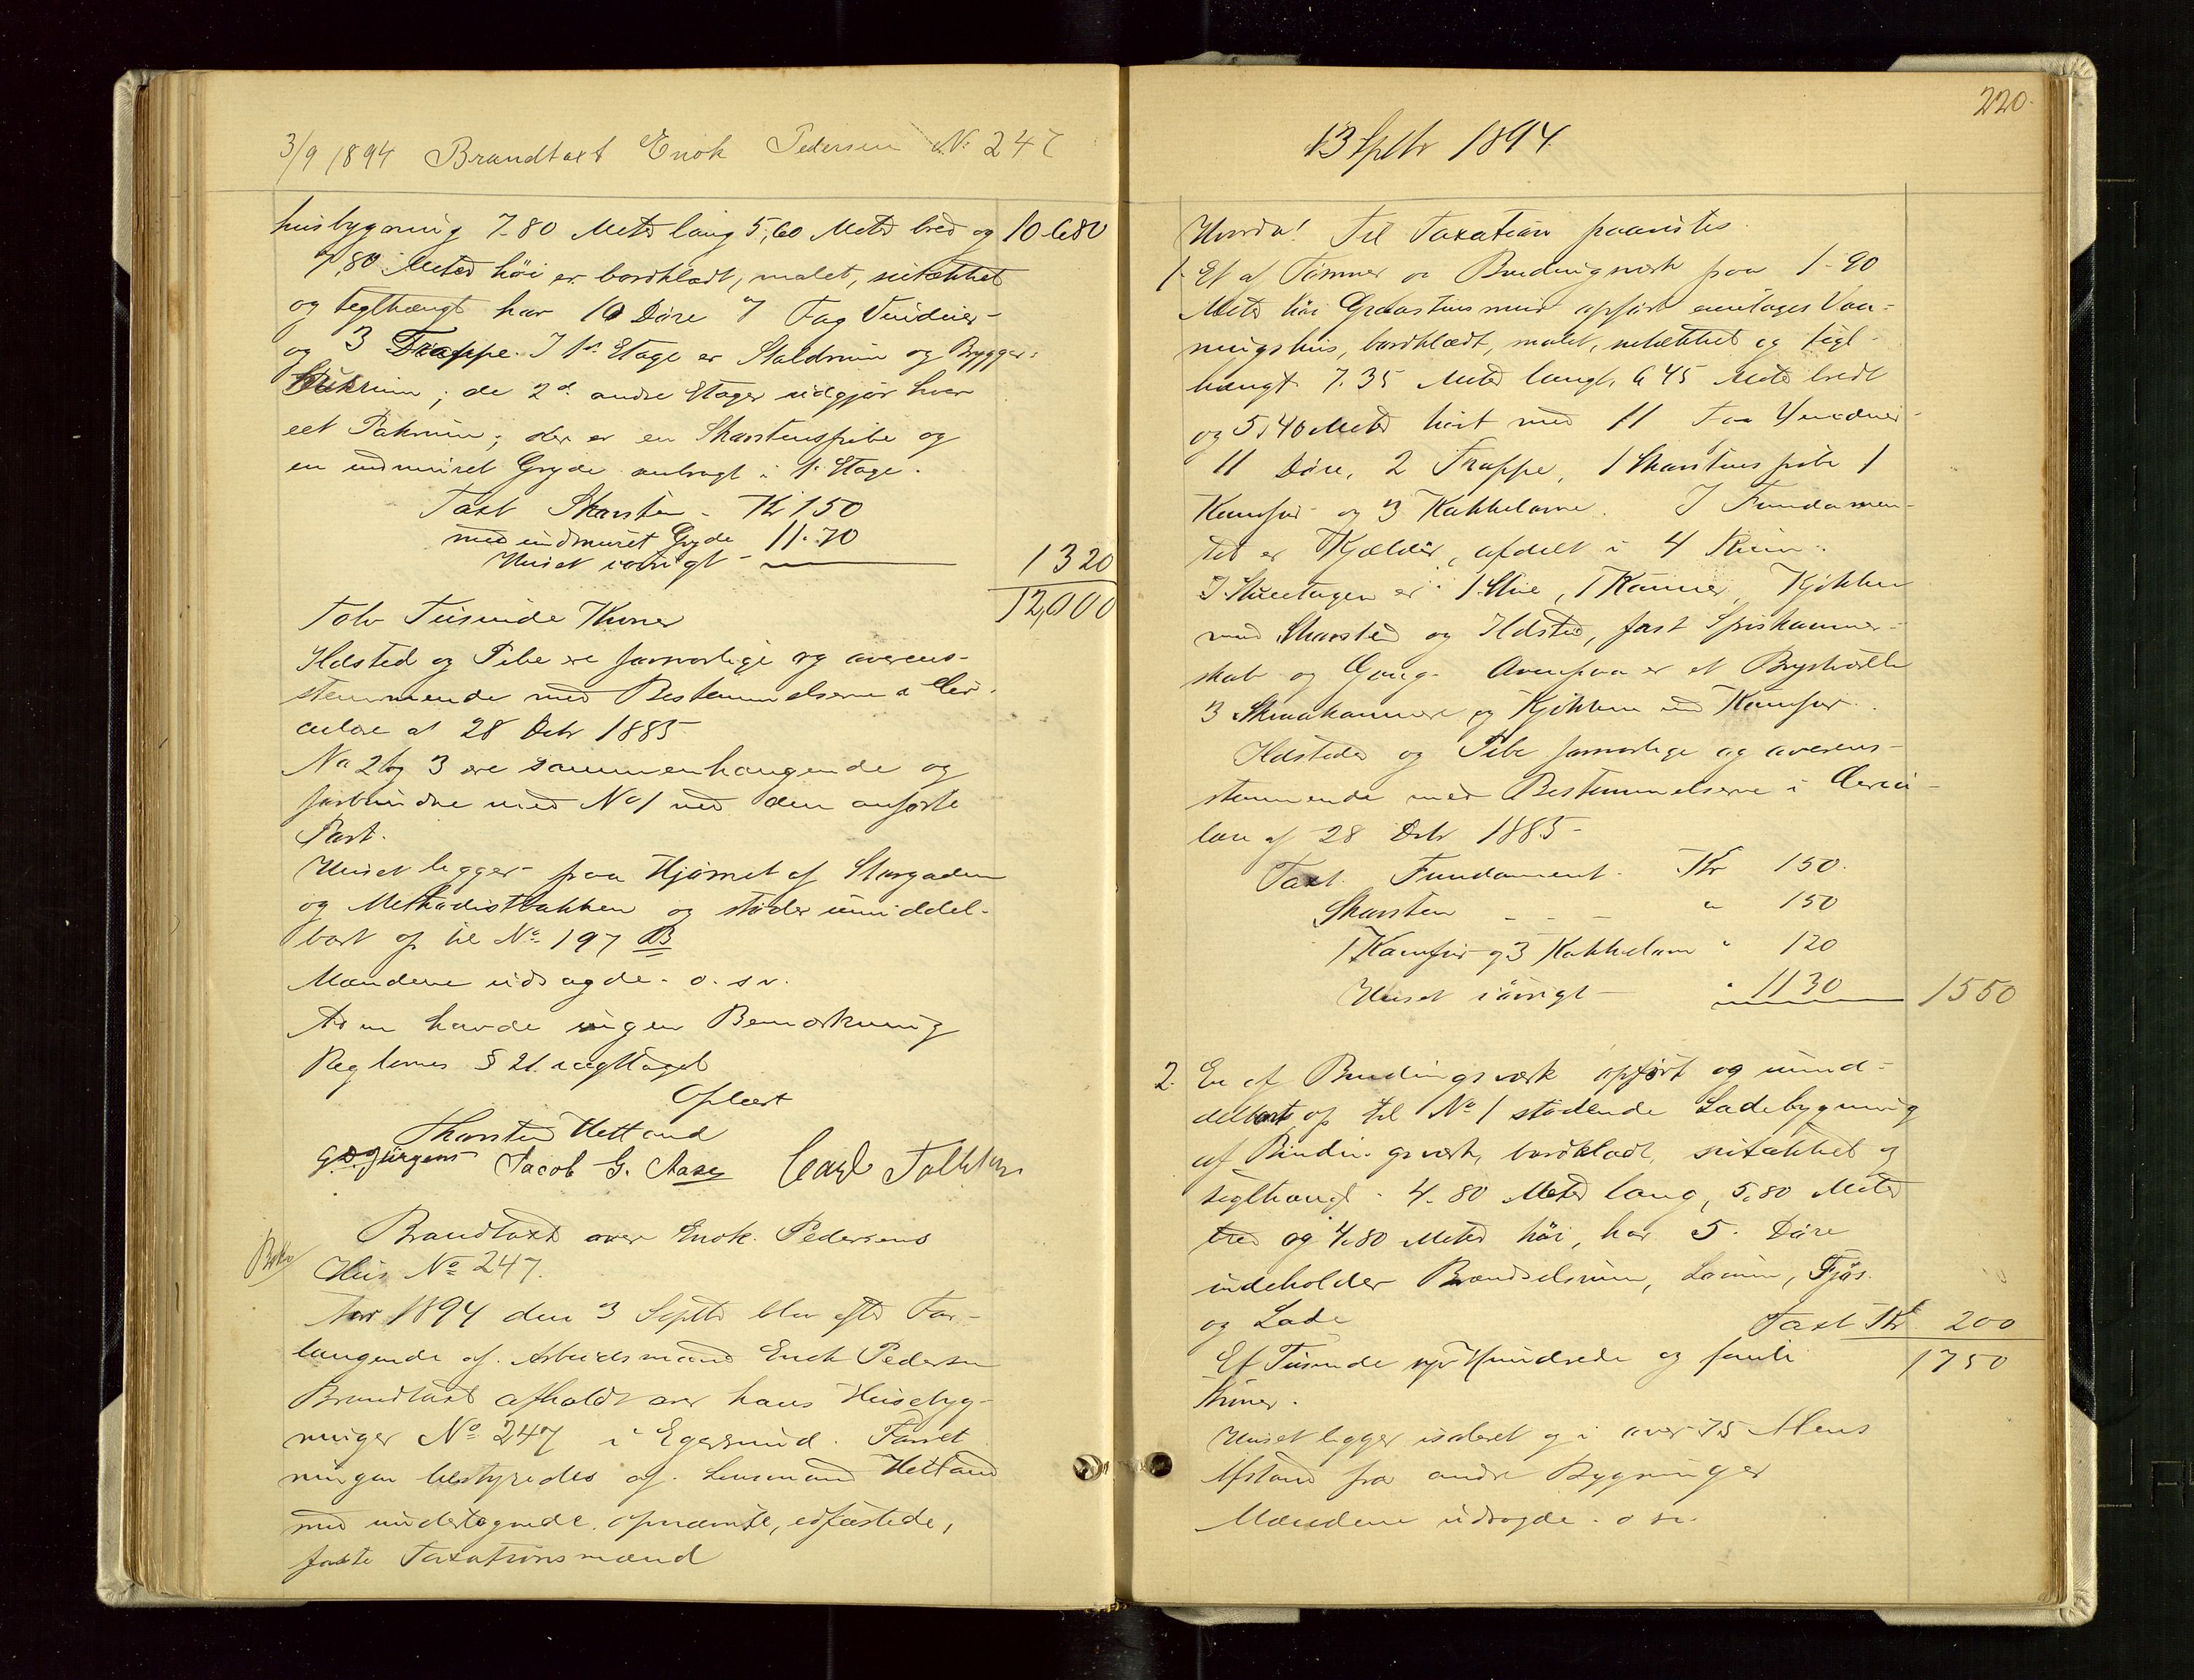 3/9 1894 Brandtaxt Enok Pedersen No 247
husbygning 7-80 Meter lang 5,60 Meter bred og 10680
7,80 Meter höi er bordklædt, malet, sutækket
og teglhængt har 10 Döre 7 Fag Vinduer
og 3 Trappe. I 1st Etage er Staldrum og Brygger-
husrum; de 2de andre Etager udgjör hver
eet Pakrum; der er en Skorstenspibe og
en indmuret Gryde anbragt i 1. Etage.
Taxt Skorsten - Kr 150
med indmuret Gryde 11.70
Huset iövrigt - 1320
12,000
Tolv Tusinde Kroner
Ildsted og Pibe ere forsvarlige og overens-
stemmende med Bestemmelserne i Cir-
culære af 28 Dcbr 1885
No 2 og 3 ere sammenhængende og
forbundne med No 1 ved den anförte
Port.
Huset ligger paa Hjörnet af Storgaden
og Methodistbakken og stöder umiddel-
bart op til No 197 B
Mændene udsagde. o. s. v.
Ingen havde ingen Bemærkning
Reglernes § 21. iagttaget
Oplæst
Thorsten Hetland
G. D. Jürgens Jacob G. Aase Carl Tollefsen
Brandtaxt over Enok Pedersens
Hus No 247.
Aar 1894 den 3 Septbr blev efter For-
langende af Arbeidsmand Enok Pedersen
Brandtaxt afholdt over hans Husebyg-
ninger No 247 i Egersund. Forret
ningen bestyredes af Lensmand Hetland
med undertegnede opnævnte, edfæstede,
faste Taxationsmænd
220.
13 Septbr 1894
Hvorda! Til Taxation paavistes
1. Et af Tömmer og Bindingsværk paa 1-90
Meter höi Graastensmur opfört eenetages Vaa-
ningshus, bordklædt, malet, sutækket og tegl-
hængt 7.35 Meter langt, 6 45 Meter bredt
og 5,40 Meter höit med 11 Fag Vinduer
11 Döre, 2 Trappe, 1 Skorstenspibe 1
Komfur og 3 Kakkelovne. I Fundamen-
tet er Kjælder, afdelt i 4 Rum.
I Stueetagen er 1 Stue, 1 Kammer, Kjökken
med Skorsten og Ildsted, fast Spiskammer-
skab og Gang. Ovenpaa er et
3 Smaakammere og Kjökken med Komfur.
Ildsteder og Pibe forsvarlige og overens-
stemmende med Bestemmelserne i Circu-
lære af 28 Dcbr 1885 -
Taxt. Fundament. Kr 150.
Skorsten - - - " 150
1 Komfur og 3 Kakkelovne " 120
Huset iövrigt - " 1130 1550
2. En af Bindingsværk opfört og umid-
delbart op til No 1 stödende Ladebygning
af Bindingsværk, bordklædt, sutækket og
teglhængt. 4.80 Meter lang, 5,80 Meter
bred og 4,80 Meter höi, har 5. Döre
indeholder Brændselsrum, Lorum, Fjös
og Lade Taxt Kr 200
Et Tusinde syv Hundrede og femti 1750
Kroner.
Huset ligger isoleret og i over 75 Alens
Afstand fra andre Bygninger
Mændene udsagde. o sv.